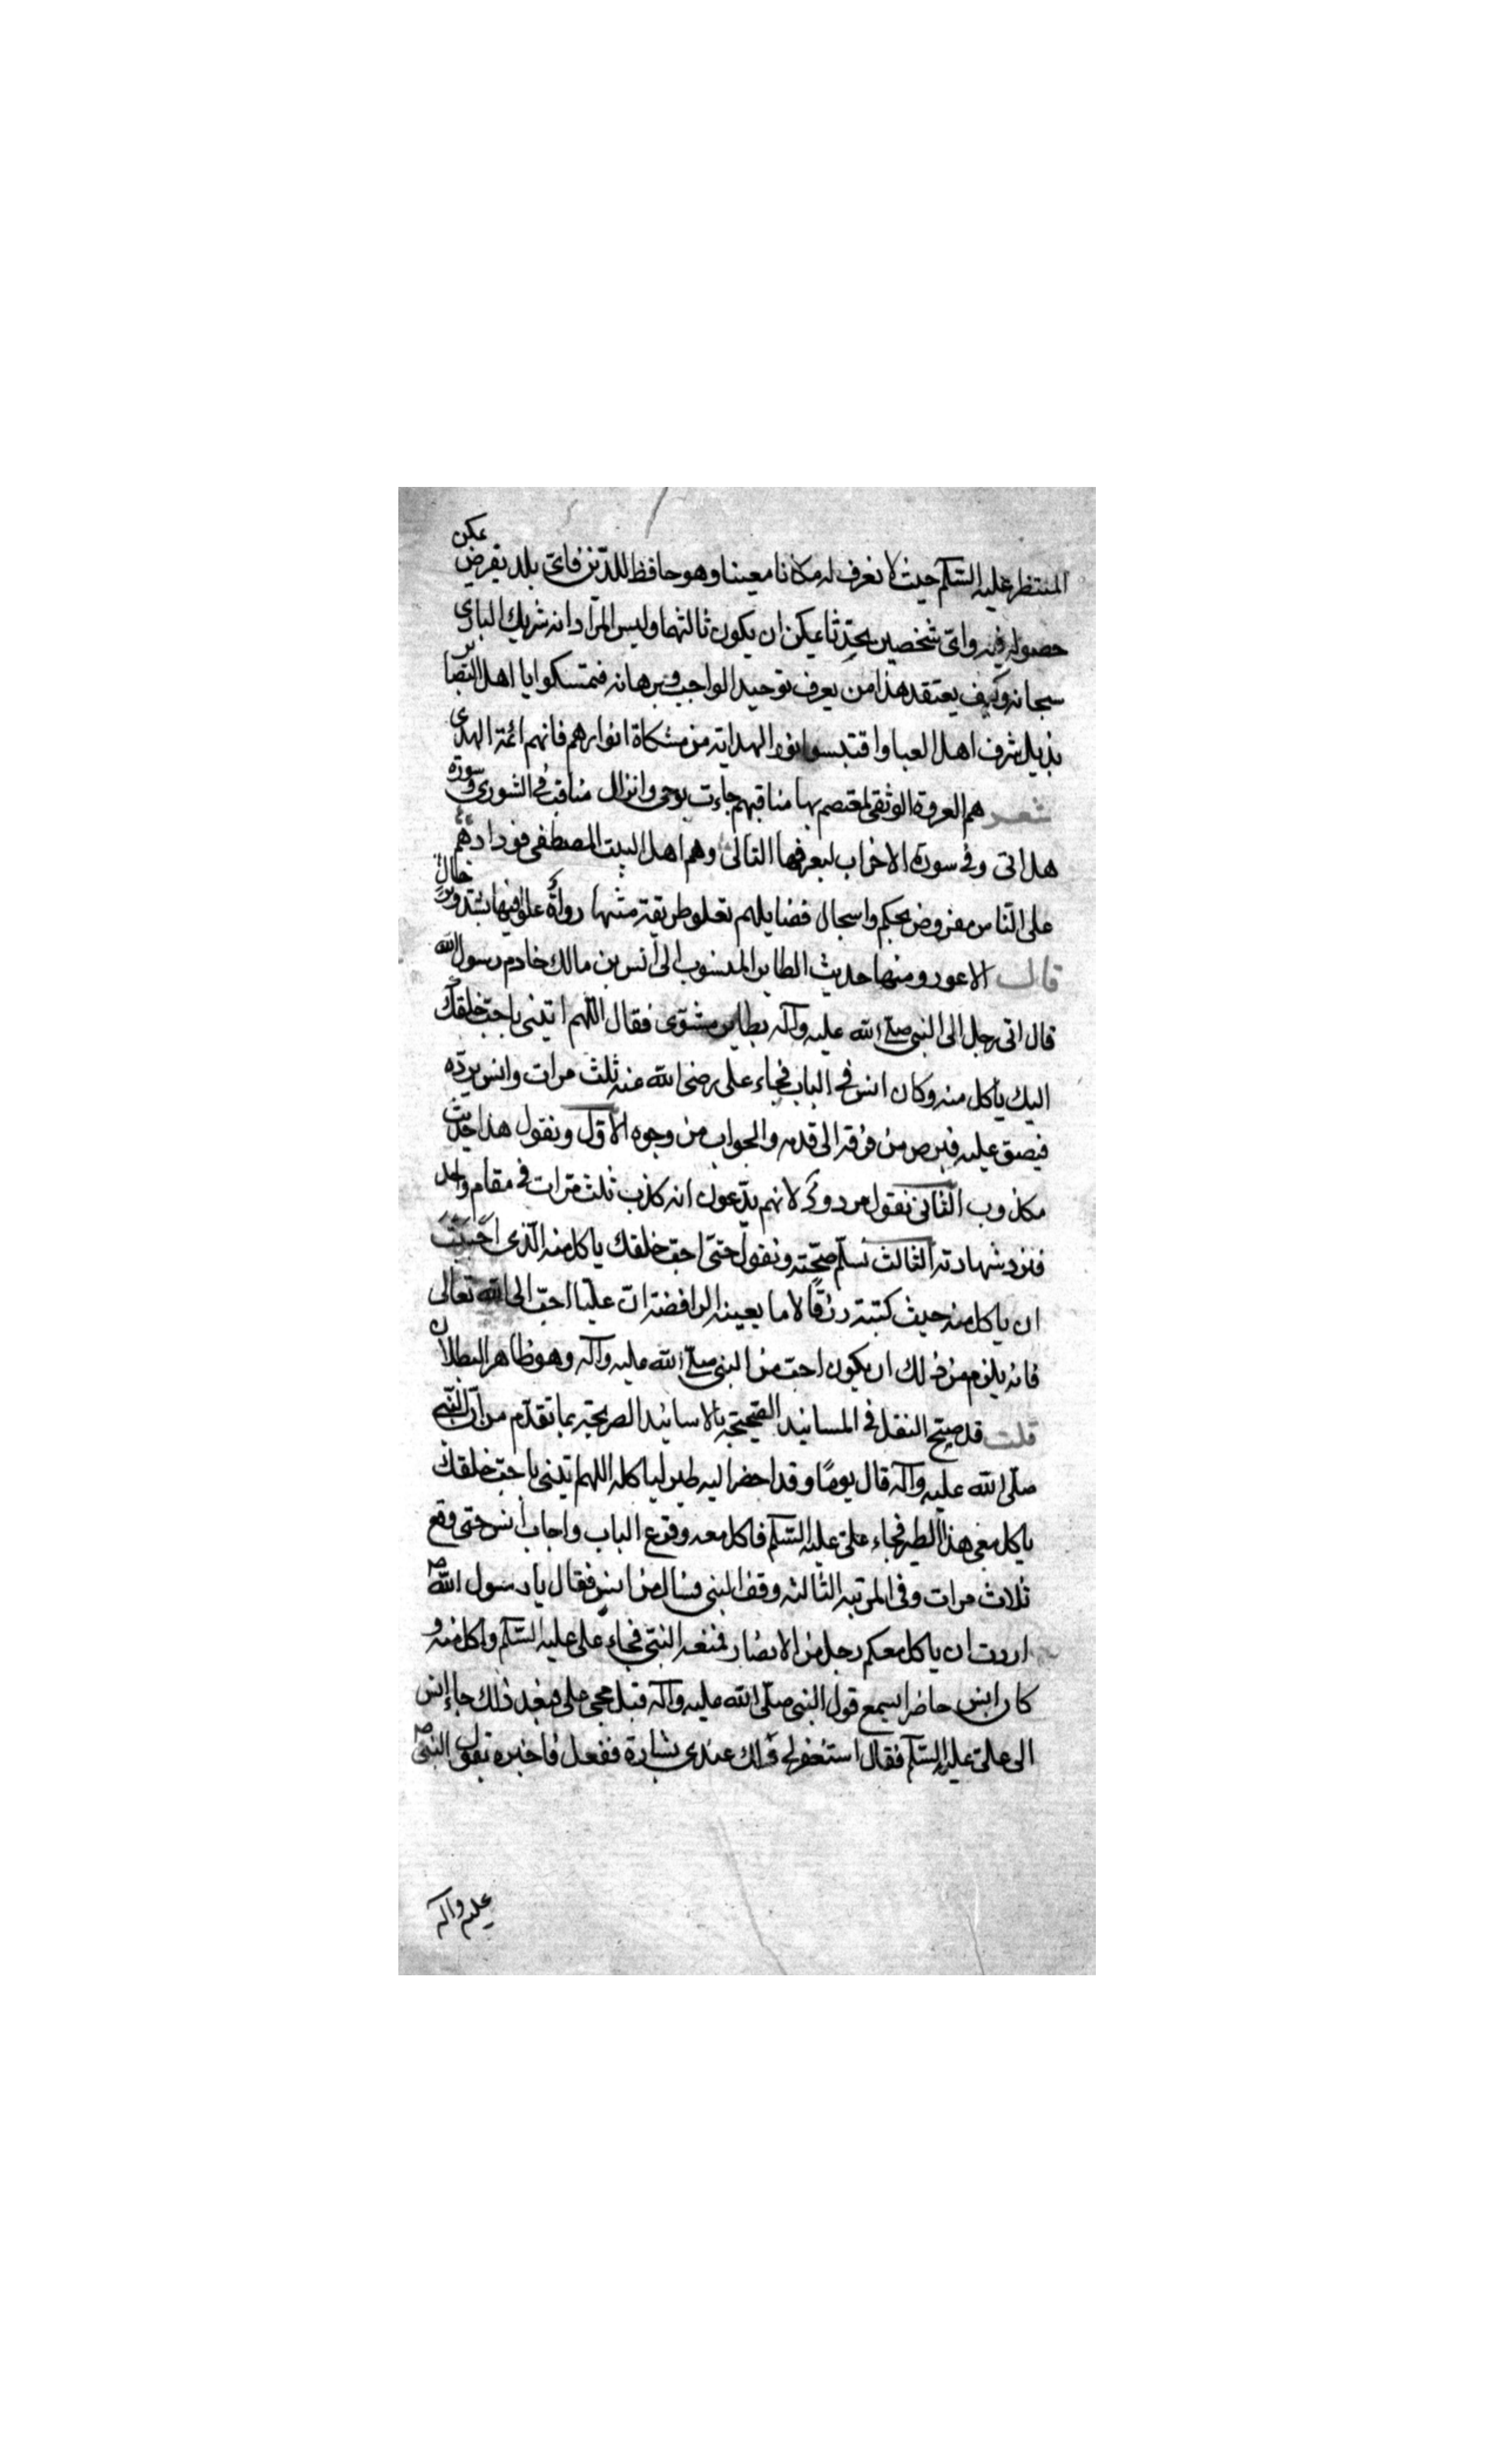 المنتظر عليه السّلام حيث لا نعرف له مكانا معينا وهو حافظ للدّين فاىّ بلد يفرض يمكن
حصوله فيه واىّ شخصين يحدّثا يمكن ان يكون ثالثهما وليس المراد انه شريك البارى
سبحانه وكيف يعتقد هذا من يعرف توحيد الواجب وبرهانه فتمسكوا يا اهل البصاير
بذيل شرف اهل العبا واقتبسوا نور الهداية من مشكاة انوارهم فانهم ائمة الهدى
شعر هم العروة الوثقى لمعتصم بها مناقبهم جاءت بوحى وانزال مناقب فى الشورى وسورة
هل اتى وفى سورة الاحزاب يعرفها التالى وهم اهل البيت المصطفى فودادهم
على النّاس مفروض بحكم واسجال فضايلهم تعلو طريقة متنها رواة علوا فيها بشدّ وترحال
قال الاعور ومنها حديث الطاير المنسوب الى أنس بن مالك خادم رسول الله
قال اتى رجل الى النبى صلى الله عليه وآله بطاير مشوّى فقال اللّهم ائتنى باحبّ خلقك
اليك ياكل منه وكان انس فى الباب فجاء على رضى الله عنه ثلث مرات وانس يردّه
فبصق عليه فبرص من فرقه الى قدمه والجواب من وجوه الأوّل ونقول هذا حديث
مكذوب الثانى نقول مردود لانهم يدّعون انه كذب ثلث مرّات فى مقام واحد
فنرد شهادته الثالث نسلّم صحّته ونقول حتى احب خلقك ياكل منه الّذى احببت
ان ياكل منه حيث كتبته رزقًا لا ما يعينه الرافضة انّ عليّا احبّ الى الله تعالى
فانه يلزم من ذلك ان يكون احبّ من النبى صلى الله عليه وآله وهو ظاهر البطلان
قلت قد صحّ النقل فى المسانيد الصّحيحة بالاسانيد الصريحة بما تقدّم من انّ النّبى
صلّى الله عليه وآله قال يومًا وقد احضر اليه طير لياكله اللهم ائتنى باحبّ خلقك
ياكل معى هذا الطير فجاء علىّ عليه السّلام فاكل معه وقرع الباب واجاب أنس حتى وقع
ثلاث مرات وفى المرتبه الثالثه وقف النبى وسال من انس فقال يا رسول الله ص
اردت ان ياكل معكم رجل من الانصار فمنعه النبّى فجاء على عليه السّلام واكل منه و
كان انس حاضرا يسمع قول النبى صلّى الله عليه وآله قبل مجىء على فبعد ذلك جاء انس
الى علىّ عليه السّلام فقال استغفر لى ولك عندى بشارة ففعل فاخبره بقول النبىّ ص
عليه وآله